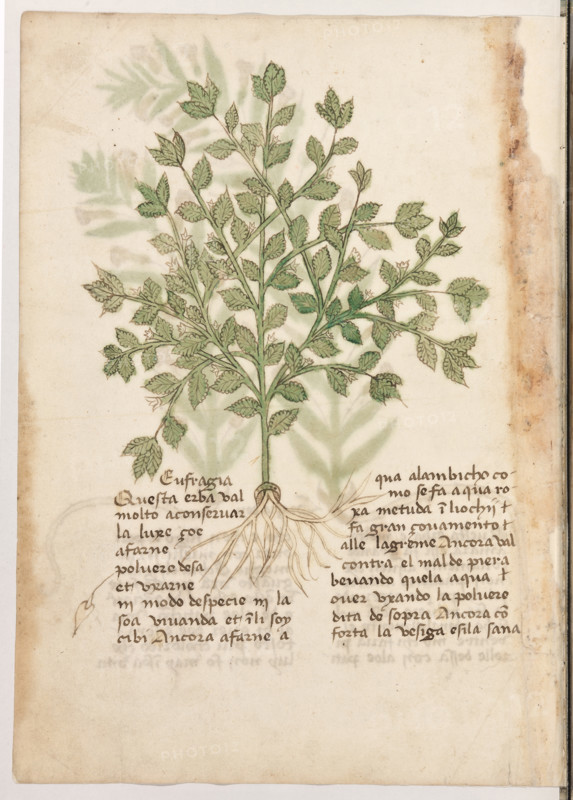 Eufragia
Questa erba val
molto aconseruar
la luxe çoe
afarne
poluere desa
et vxarne
in modo despecie in la
soa viuanda et ĩ li soy
cibi Ancora afarne a
qua alambicho co-
mo se fa a qua ro-
xa metuda ĩ liochij ⁊
fa gran çouamento ⁊
alle lagrème Ancora val
contra el mal de piera
beuando quela aqua ⁊
ouer vxando la poluere
dita de sopra Ancora cõ
forta la vesiga e fila sana